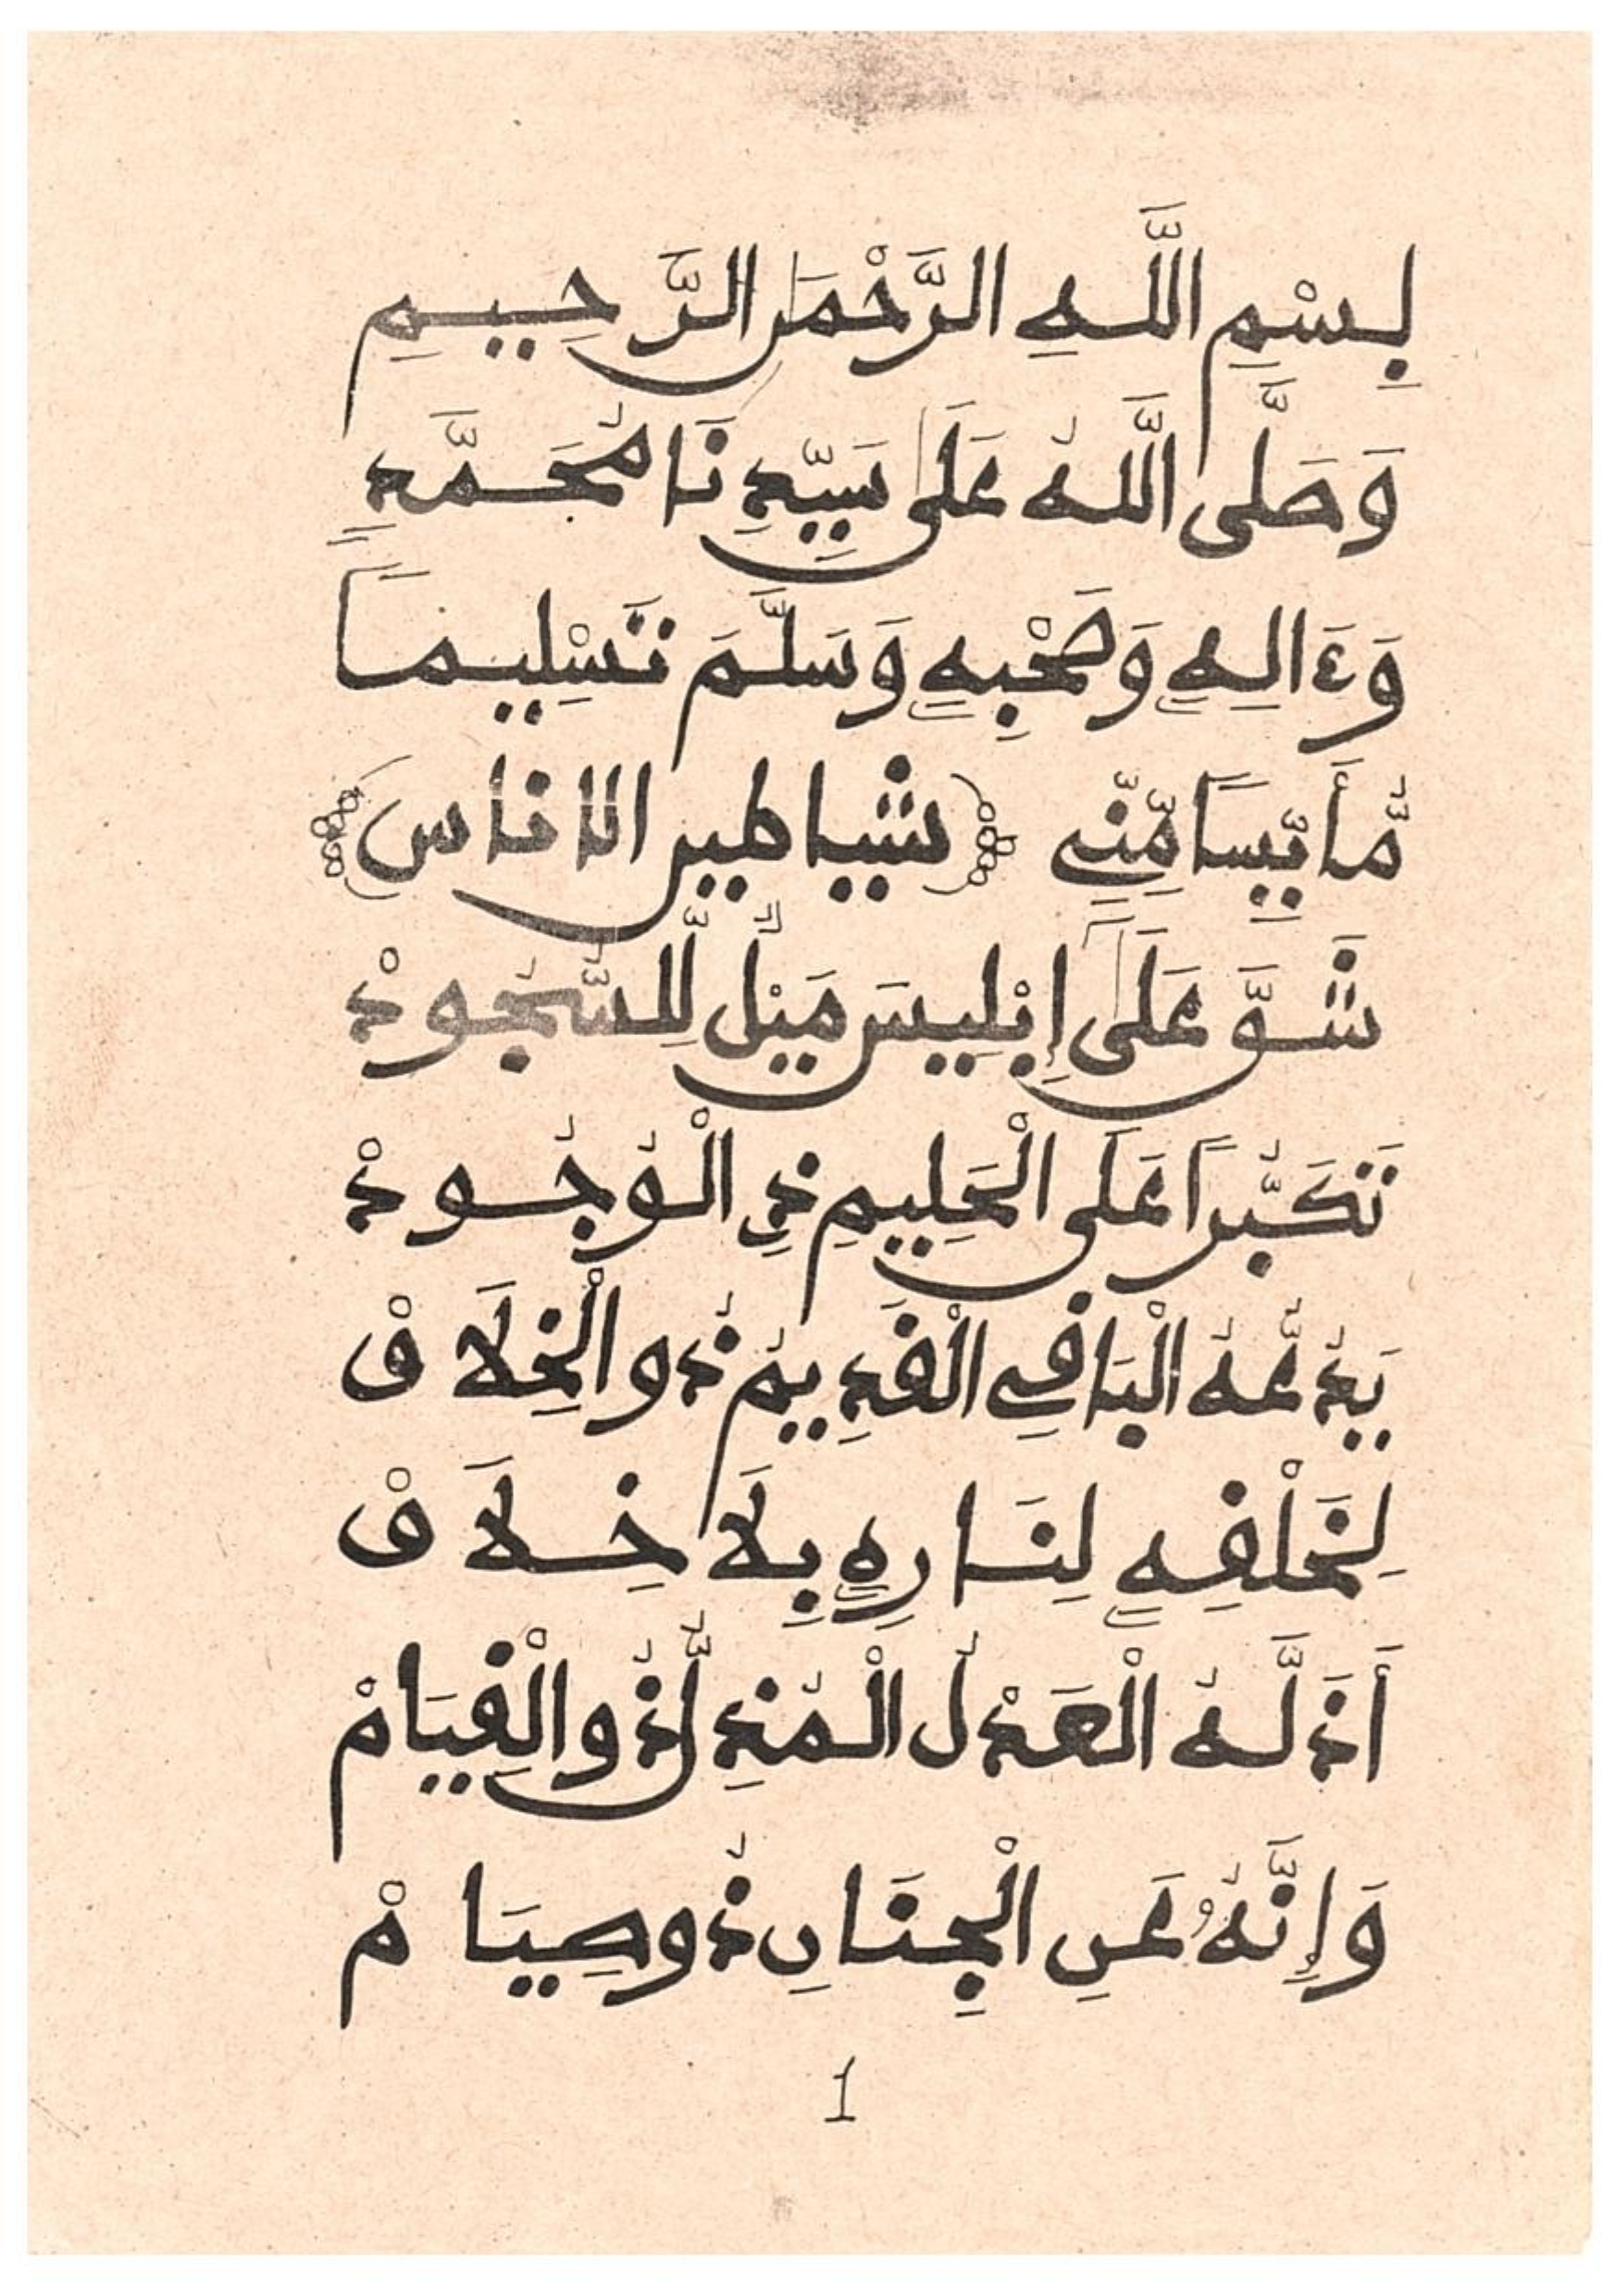 بِسْمِ اللَّهِ الرَّحْمَٰنِ الرَّحِيمِ
وَصَلَّى اللَّهُ عَلَىٰ سَيِّدِنَا مُحَمَّدٍ
وَءَالِهِ وَصَحْبِهِ وَسَلَّمَ تَسْلِيمًا
مُّأَيِّسًا مِّنِّے شياطين الاناس
شَقَّ عَلَىٰ إِبْلِيسَ مَيْلٌ لِّلسُّجُودْ
تَكَبُّرًا عَلَى الْحَلِيمِ ذِي الْوُجُودْ
يَدُعُّهُ الْبَاقِے الْقَدِيمُ ذُو الْخِلَاقْ
لِخَلْقِهِ لِنَارِهِ بِلَا خِلَافْ
أَذَلَّهُ الْعَدْلُ الْمُذِلُّ ذُو الْقِيَامْ
وَإِنَّهُ عَنِ الْجِنَانِ ذُو صِيَامْ
1